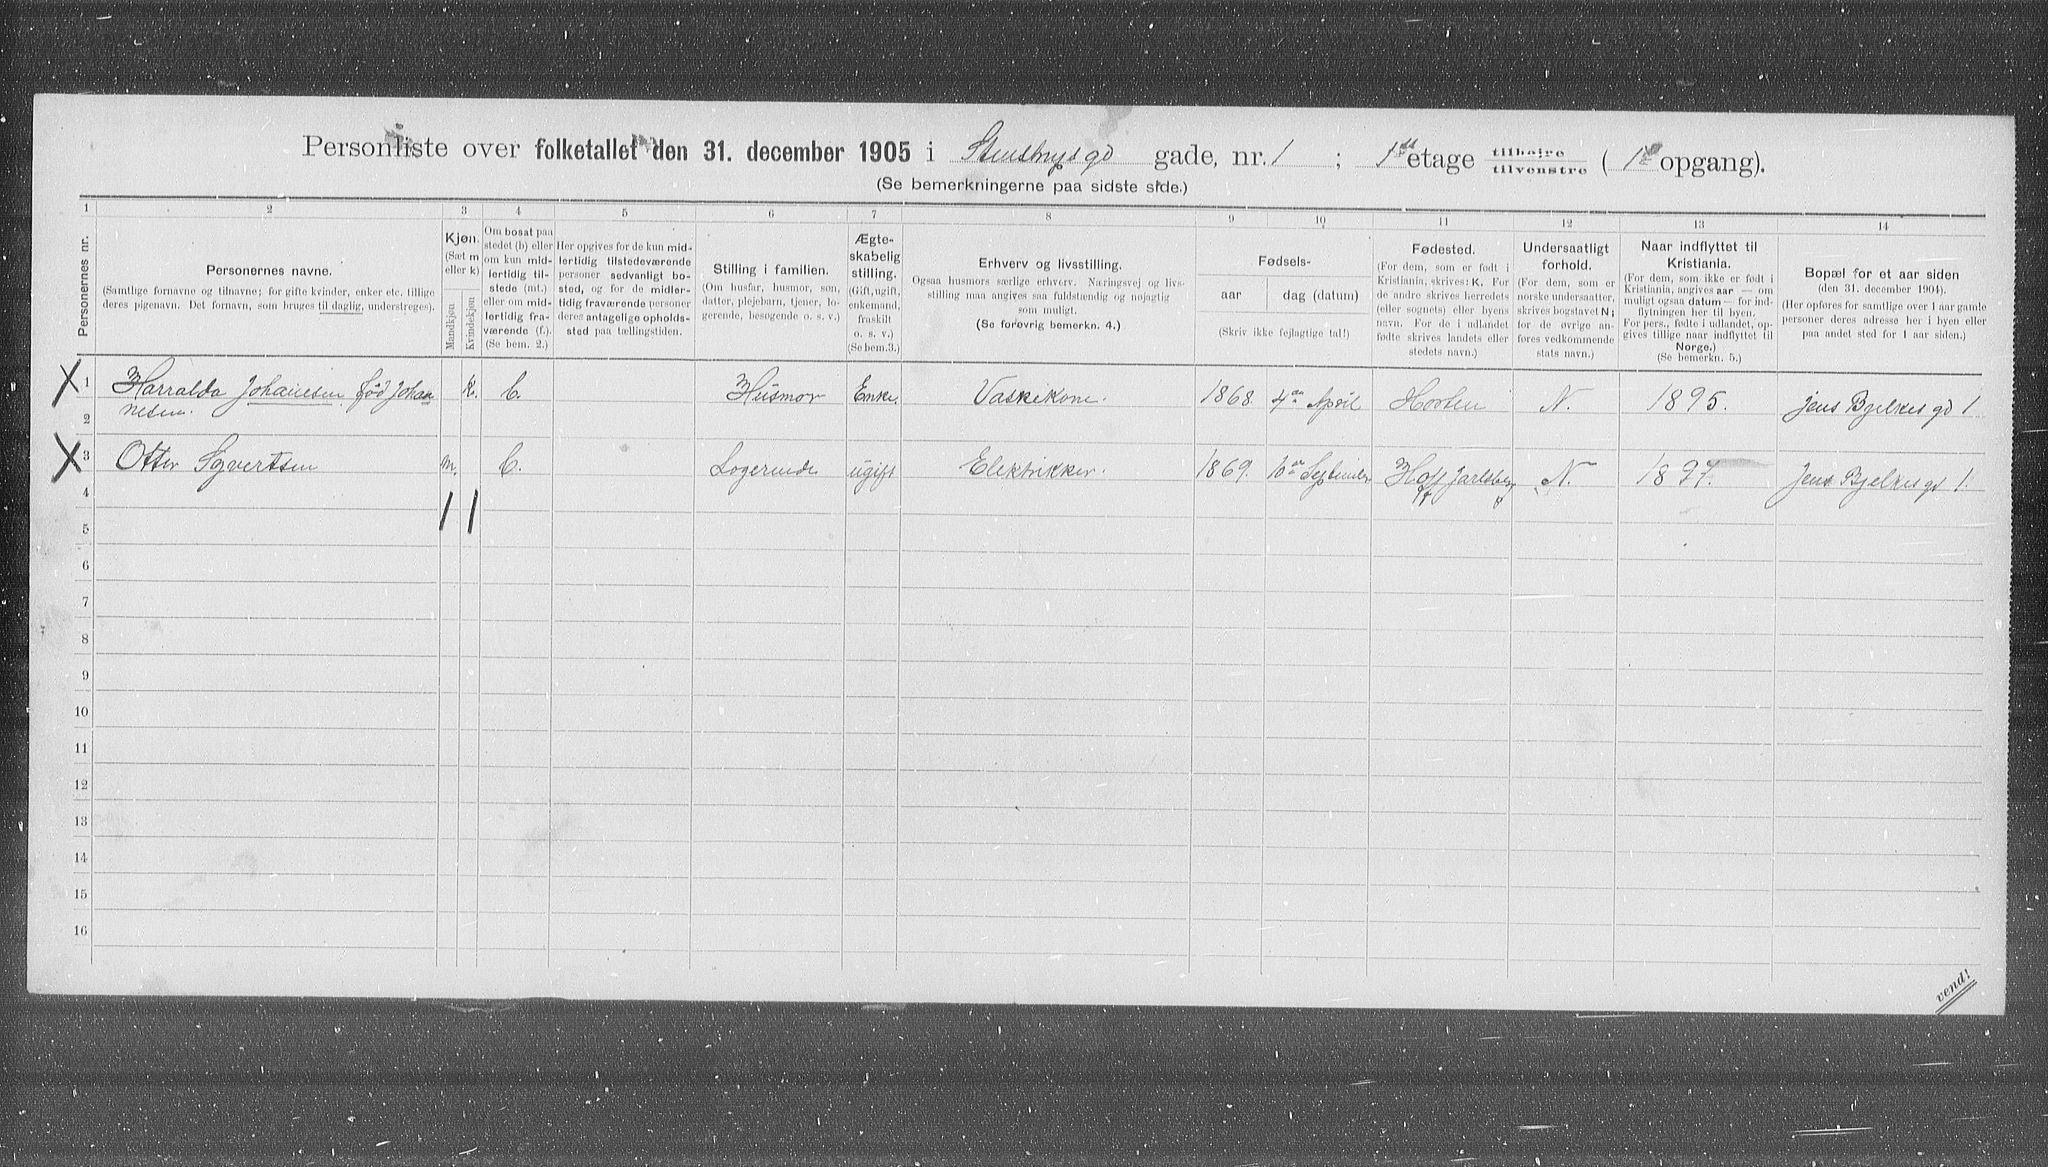 Personliste over folketallet den 31. december 1905 i Stenstrupsgd gade, nr. 1 ; 1ste etage tilhøire tilvenstre ( 1ste opgang).
(Se bemerkningerne paa sidste side.)
1 2 3 4 5 6 7 8 9 10 11 12 13 14
Personernes nr.
Personernes navne.
(Samtlige fornavne og tilnavne; for gifte kvinder, enker etc. tillige
deres pigenavn. Det fornavn, som bruges til daglig, understreges).
Kjøn.
(Sæt m
eller k)
Mandkjøn
Kvindekjøn
Om bosat paa
stedet (b) eller
om kun mid-
lertidig til-
stede (mt.)
eller om mid-
lertidig fra-
værende (f.).
(Se bem. 2.)
Her opgives for de kun mid-
lertidig tilstedeværende
personer sedvanligt bo-
sted, og for de midler-
tidig fraværende personer
deres antagelige opholds-
sted paa tællingstiden.
Stilling i familien.
(Om husfar, husmor, søn,
datter, plejebarn, tjener, lo-
gerende, besøgende o. s. v.)
Ægte-
skabelig
stilling.
(Gift, ugift,
enkemand,
fraskilt
o. s. v.)
(Se bem.3.)
Erhverv og livsstilling.
Ogsaa husmors særlige erhverv. Næringsvej og livs-
stilling maa angives saa fuldstændig og nøjagtig
som muligt.
(Se forøvrig bemerkn. 4.)
Fødsels-
aar
dag (datum)
(Skriv ikke fejlagtige tal!)
Fødested.
(For dem, som er født i
Kristiania, skrives: K. For
de andre skrives herredets
(eller sognets) eller byens
navn. For de i udlandet
fødte skrives landets eller
stedets navn.)
Undersaatligt
forhold.
(For dem, som er
norske undersaatter,
skrives bogstavet N;
for de øvrige an-
føres vedkommende
stats navn.)
Naar indflyttet til
Kristiania.
(For dem, som ikke er født i
Kristiania, angives aar — om
muligt ogsaa datum — for ind-
flytningen her til byen.
For pers., fødte i udlandet, op-
gives tillige naar indflyttet til
Norge.)
(Se bemerkn. 5.)
Bopæl for et aar siden
(den 31. december 1904).
(Her opføres for samtlige over 1 aar gamle
personer deres adresse her i byen eller
paa andet sted for 1 aar siden.)
X 1 Harralda Johanesen fød Johan k. b. Husmor Enke. Vaskekone. 1868. 4de April Horten N. 1895. Jens Bjelkes gd 1
2 nesen.
X 3 Otter Syvertsen m. b. Logerende ugift Elektrikker. 1869. 10de September Hoff Jarlsberg N. 1897. Jens Bjelkes gd 1.
4 1 1
5
6
7
8
9
10
11
12
13
14
15
16
vend!